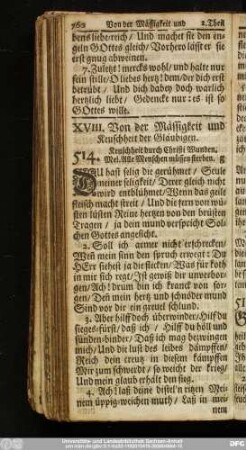 760 Von der Mässigkeit und 2. Theil
bens liebe reich / Und machet sie den en-
geln GOttes gleich / Vorhero lässt er sie
erst gnug abweinen.
7. Zuletzt! mercks wohl / und halte nur
fein stille / O liebes hertz! dem / der dich erst
betrübt / Und dich dabey doch warlich
hertzlich liebt / Gedencke nur: es ist so
GOttes wille.
XVIII. Von der Mässigkeit und
Keuschheit der Gläubigen.
Keuschheit durch Christi Wunden.
514. Mel. Alle Menschen müssen sterben.
DU hast selig die gerühmet / Seele
meiner seligkeit / Derer gleich nicht
wird entblühmet / Wenn das geile
fleisch macht streit / Und die fern von wü-
sten lüsten Reine hertzen von den brüsten
Tragen / ja dein mund verspricht Sol-
chen Gottes angesicht.
2. Soll ich armer nicht erschrecken /
Weñ mein sinn den spruch erwegt: Du
HErr siehest ja die flecken / Was für koth
in mir sich regt / Ist gemüt der unverbor-
gen / Ach! drum bin ich kranck von sor-
gen / Deñ mein hertz und schnöder mund
Sind vor dir ein greuel schlund.
3. Aber hilff doch überwinder / Hilff du
sieges-fürst / daß ich / Hilff du höll und
sünden-binder / Daß ich mag bezwingen
mich / Und die lust des leibes dämpffen /
Reich dein creutz in diesem kämpffen
Mir zum schwerdt / so weicht der krieg /
Und mein glaub erhält den sieg.
4. Ach! laß deine distel'n ritzen Mei-
nem üppig-weichen muth / Laß in mei-
nem
Universitäts- und Landesbibliothek Sachsen-Anhalt